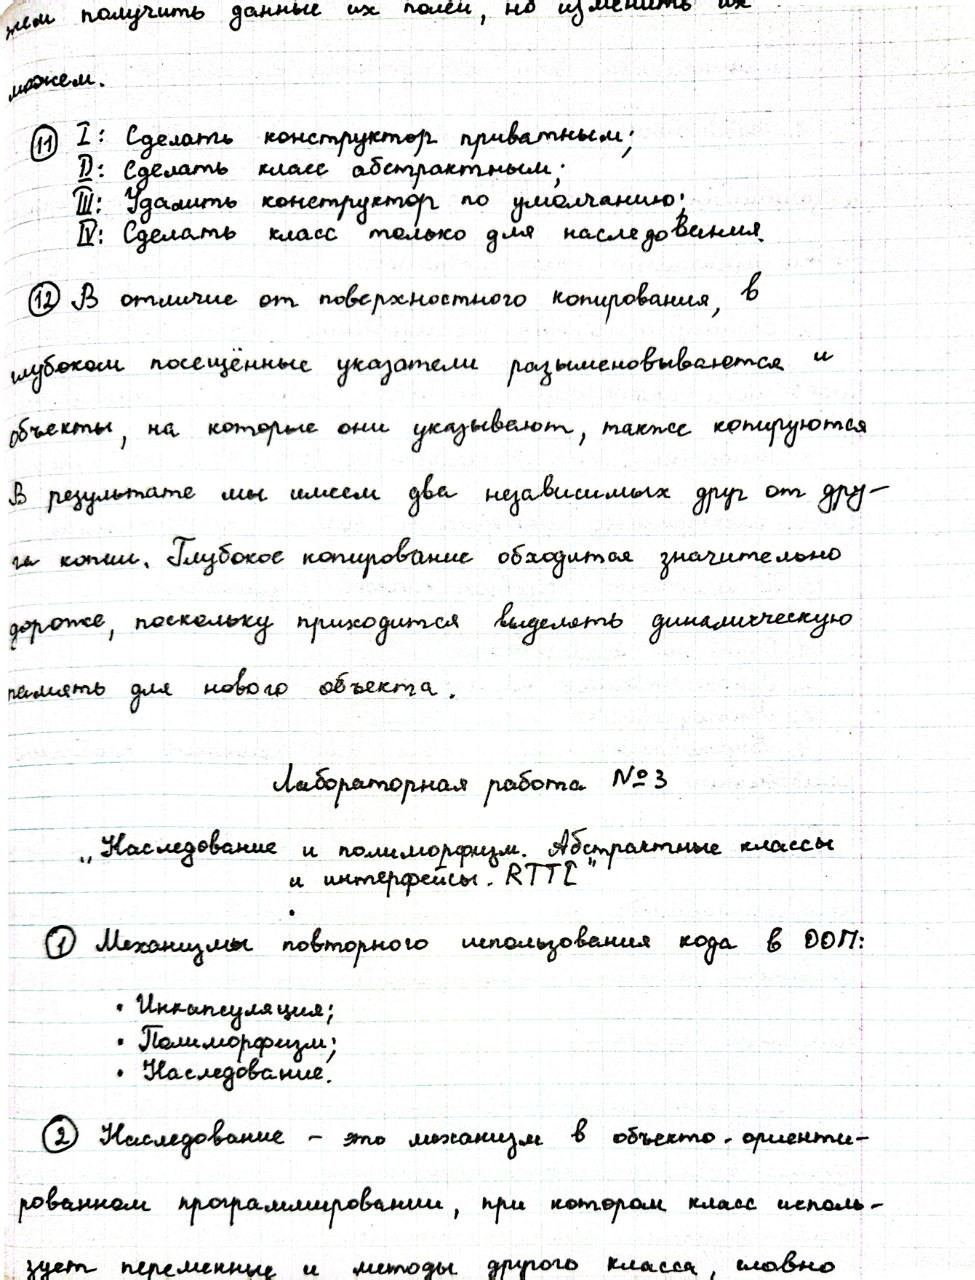 жем получить данные их полей, но изменить их
можем.
11 I: Сделать конструктор приватным;
II: Сделать класс абстрактным;
III: Удалить конструктор по умолчанию;
IV: Сделать класс только для наследования.
12 В отличие от поверхностного копирования, в
глубоком посещённые указатели разыменовываются и
объекты, на которые они указывают, также копируются
В результате мы имеем два независимых друг от дру-
га копии. Глубокое копирование обходится значительно
дороже, поскольку приходится выделять динамическую
память для нового объекта.
Лабораторная работа №3
„Наследование и полиморфизм. Абстрактные классы
и интерфейсы. RTTI"
1 Механизмы повторного использования кода в ООП:
• Инкапсуляция;
• Полиморфизм;
• Наследование.
2 Наследование – это механизм в объекто-ориенти-
рованном программировании, при котором класс исполь-
зует переменные и методы другого класса, словно